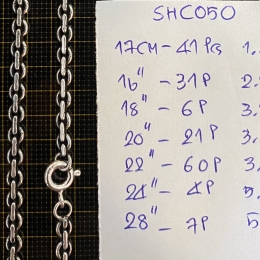 SHC050
17CM - 41 Pcs 1.
16" - 31P 2.
18" - 6P 3.
20" - 21P 3.
22" - 60P 3.
24" - 4P 5.
28" - 7P 5